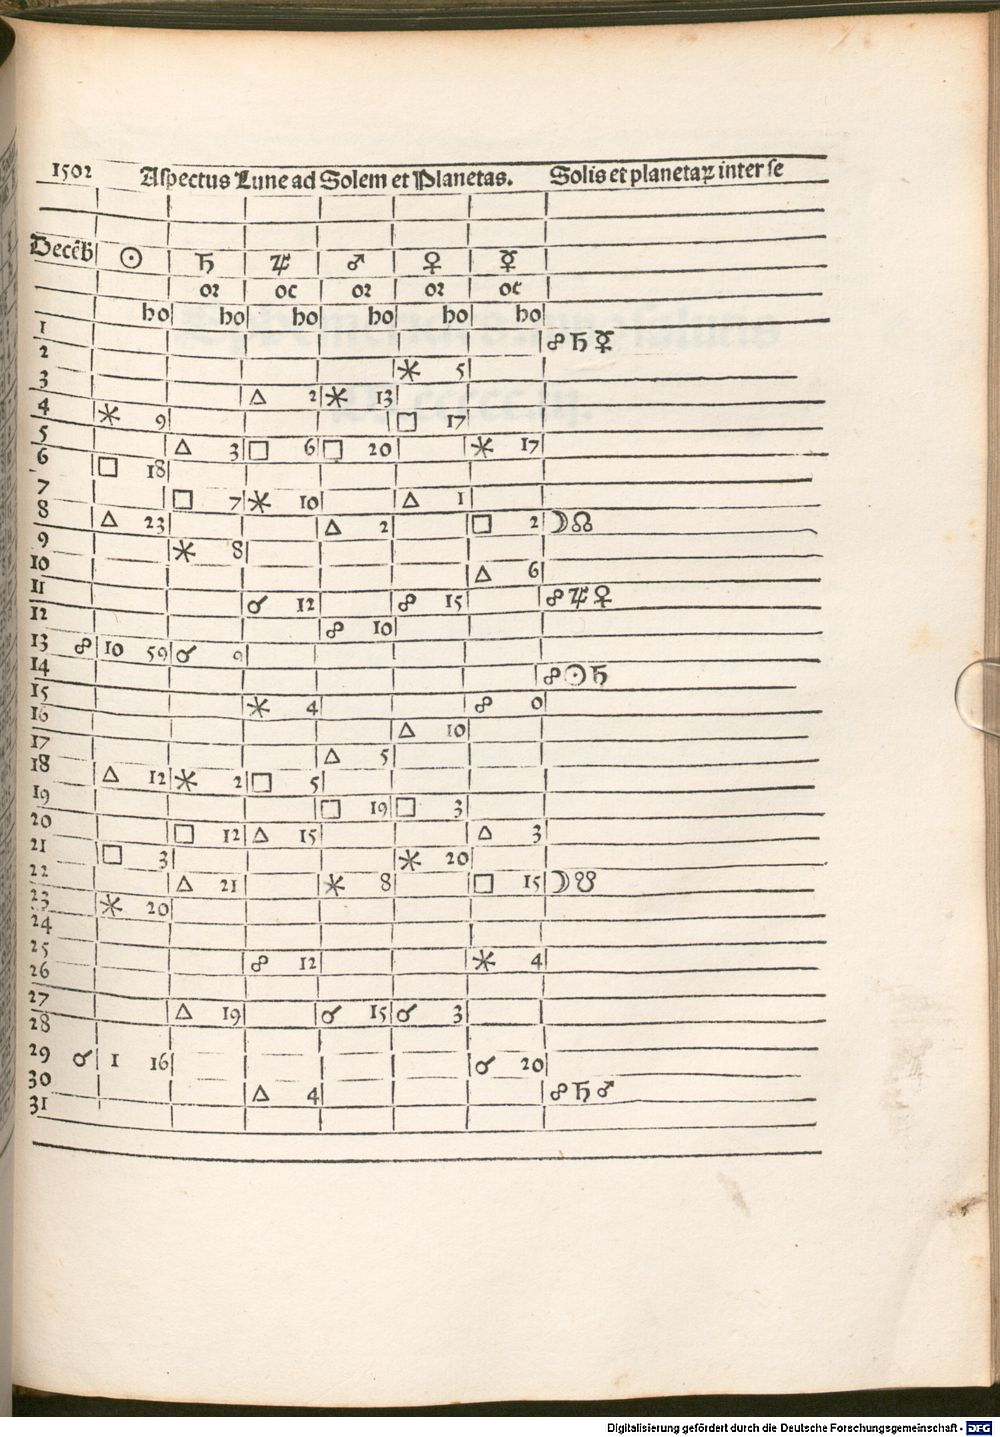 1502 Aspectus Lune ad Solem et Planetas. Solis et planetaꝝ inter se
Decēb ☉ ♄ ♃ ♂ ♀ ☿
oꝛ oc oꝛ oꝛ oc
ho ho ho ho ho ho
1 ☍ ♄ ☿
2 ⚹ 5
3 △ 2 ⚹ 13
4 ⚹ 9 □ 17
5 △ 3 □ 6 □ 20 ⚹ 17
6 □ 18
7 □ 7 ⚹ 10 △ 1
8 △ 23 △ 2 □ 2 ☽ ☊
9 ⚹ 8
10 △ 6
11 ☌ 12 ☍ 15 ☍ ♃ ♀
12 ☍ 10
13 ☍ 10 59 ☌ 9
14 ☍ ☉ ♄
15 ⚹ 4 ☍ 0
16 △ 10
17 △ 5
18 △ 12 ⚹ 2 □ 5
19 □ 19 □ 3
20 □ 12 △ 15 △ 3
21 □ 3 ⚹ 20
22 △ 21 ⚹ 8 □ 15 ☽ ☋
23 ⚹ 20
24
25 ☍ 12 ⚹ 4
26
27 △ 19 ☌ 15 ☌ 3
28
29 ☌ 1 16 ☌ 20
30 △ 4 ☍ ♄ ♂
31
Digitalisierung gefördert durch die Deutsche Forschungsgemeinschaft - DFG